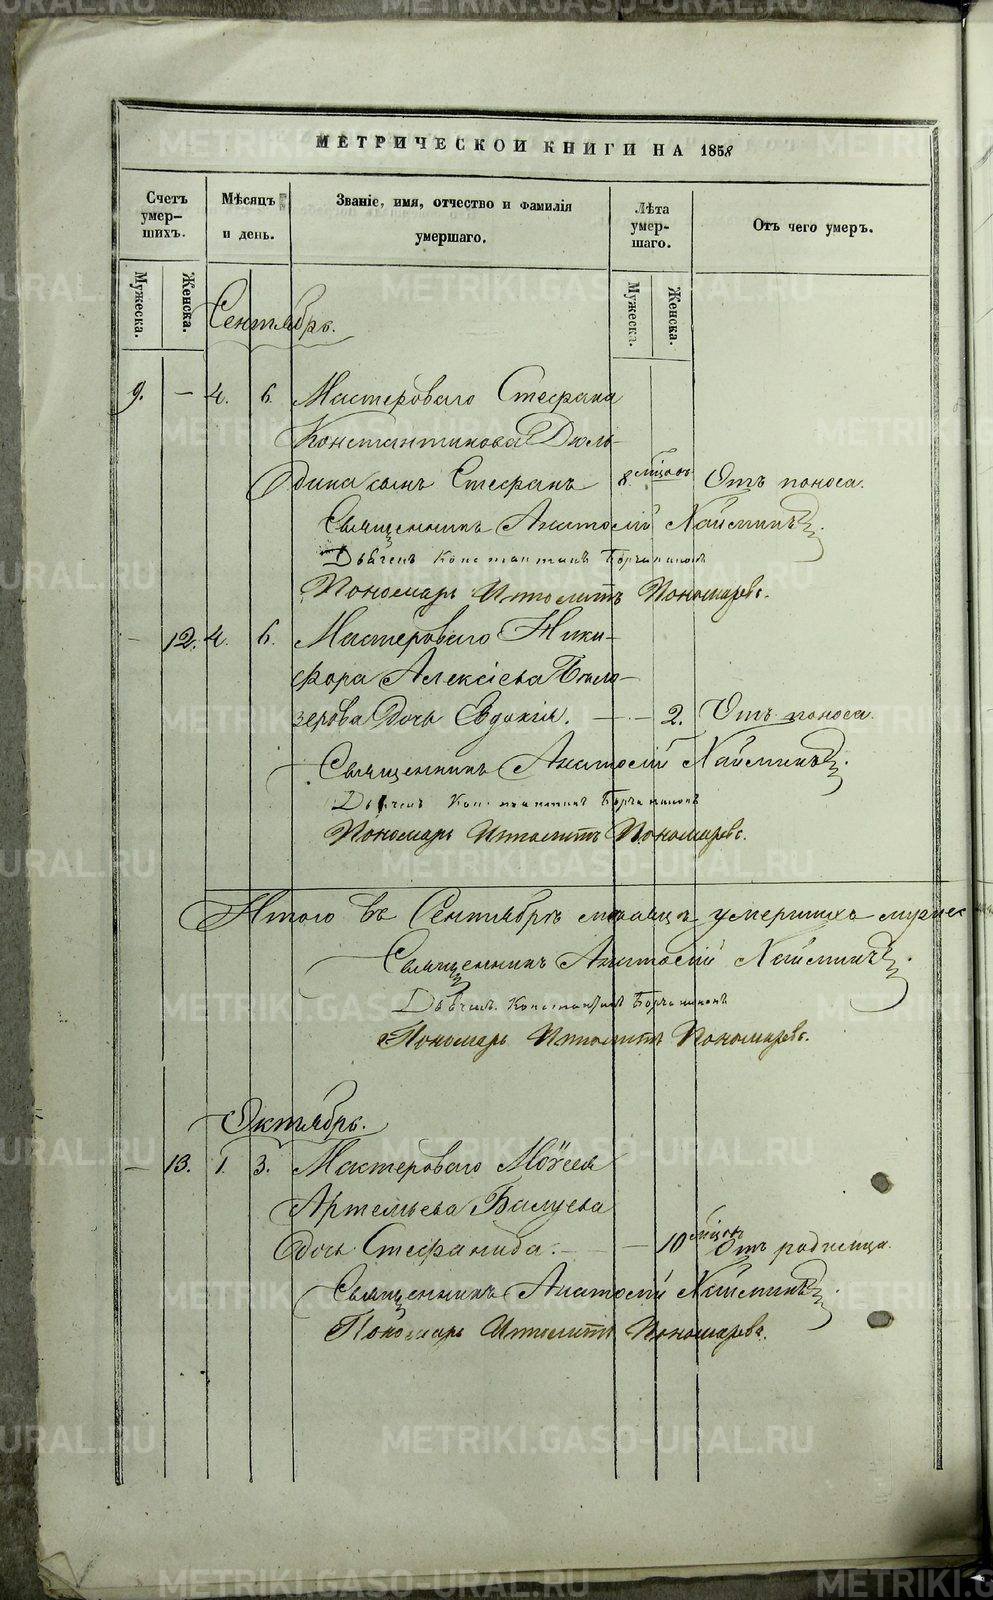 МЕТРИЧЕСКОЙ КНИГИ НА 1858
Счетъ умер-шихъ.
Мѣсяцъ и день.
Званіе, имя, отчество и фамилія умершаго.
Лѣта умер-шаго.
Отъ чего умеръ.
Мужеска.
Женска.
Мужеска.
Женска.
Сентябрь.
9. — 4. 6. Мастероваго Стефана
Константинова Дюль-
дина сынъ Стефанъ 8. мѣсяц. Отъ поноса.
Священникъ Анатолій
Дьячекъ Константинъ
Пономарь Ипполитъ Пономаревъ.
— 12. 4. 6. Мастероваго Ники-
фора Алексіева Бѣло-
зерова дочь Евдокія. — — 2. Отъ поноса.
Священникъ Анатолій
Дьячекъ Константинъ
Пономарь Ипполитъ Пономаревъ.
Итого въ Сентябрѣ мѣсяцѣ умершихъ мужес
Священникъ Анатолій
Дьячекъ Константинъ
Пономарь Ипполитъ Пономаревъ.
Октябрь.
— 13. 1. 3. Мастероваго Моѵсея
Артемьева Балуева
дочь Стефанида. — — 10 мѣсяц. Отъ родимца.
Священникъ Анатолій
Пономарь Ипполитъ Пономаревъ.
METRIKI.GASO-URAL.RU